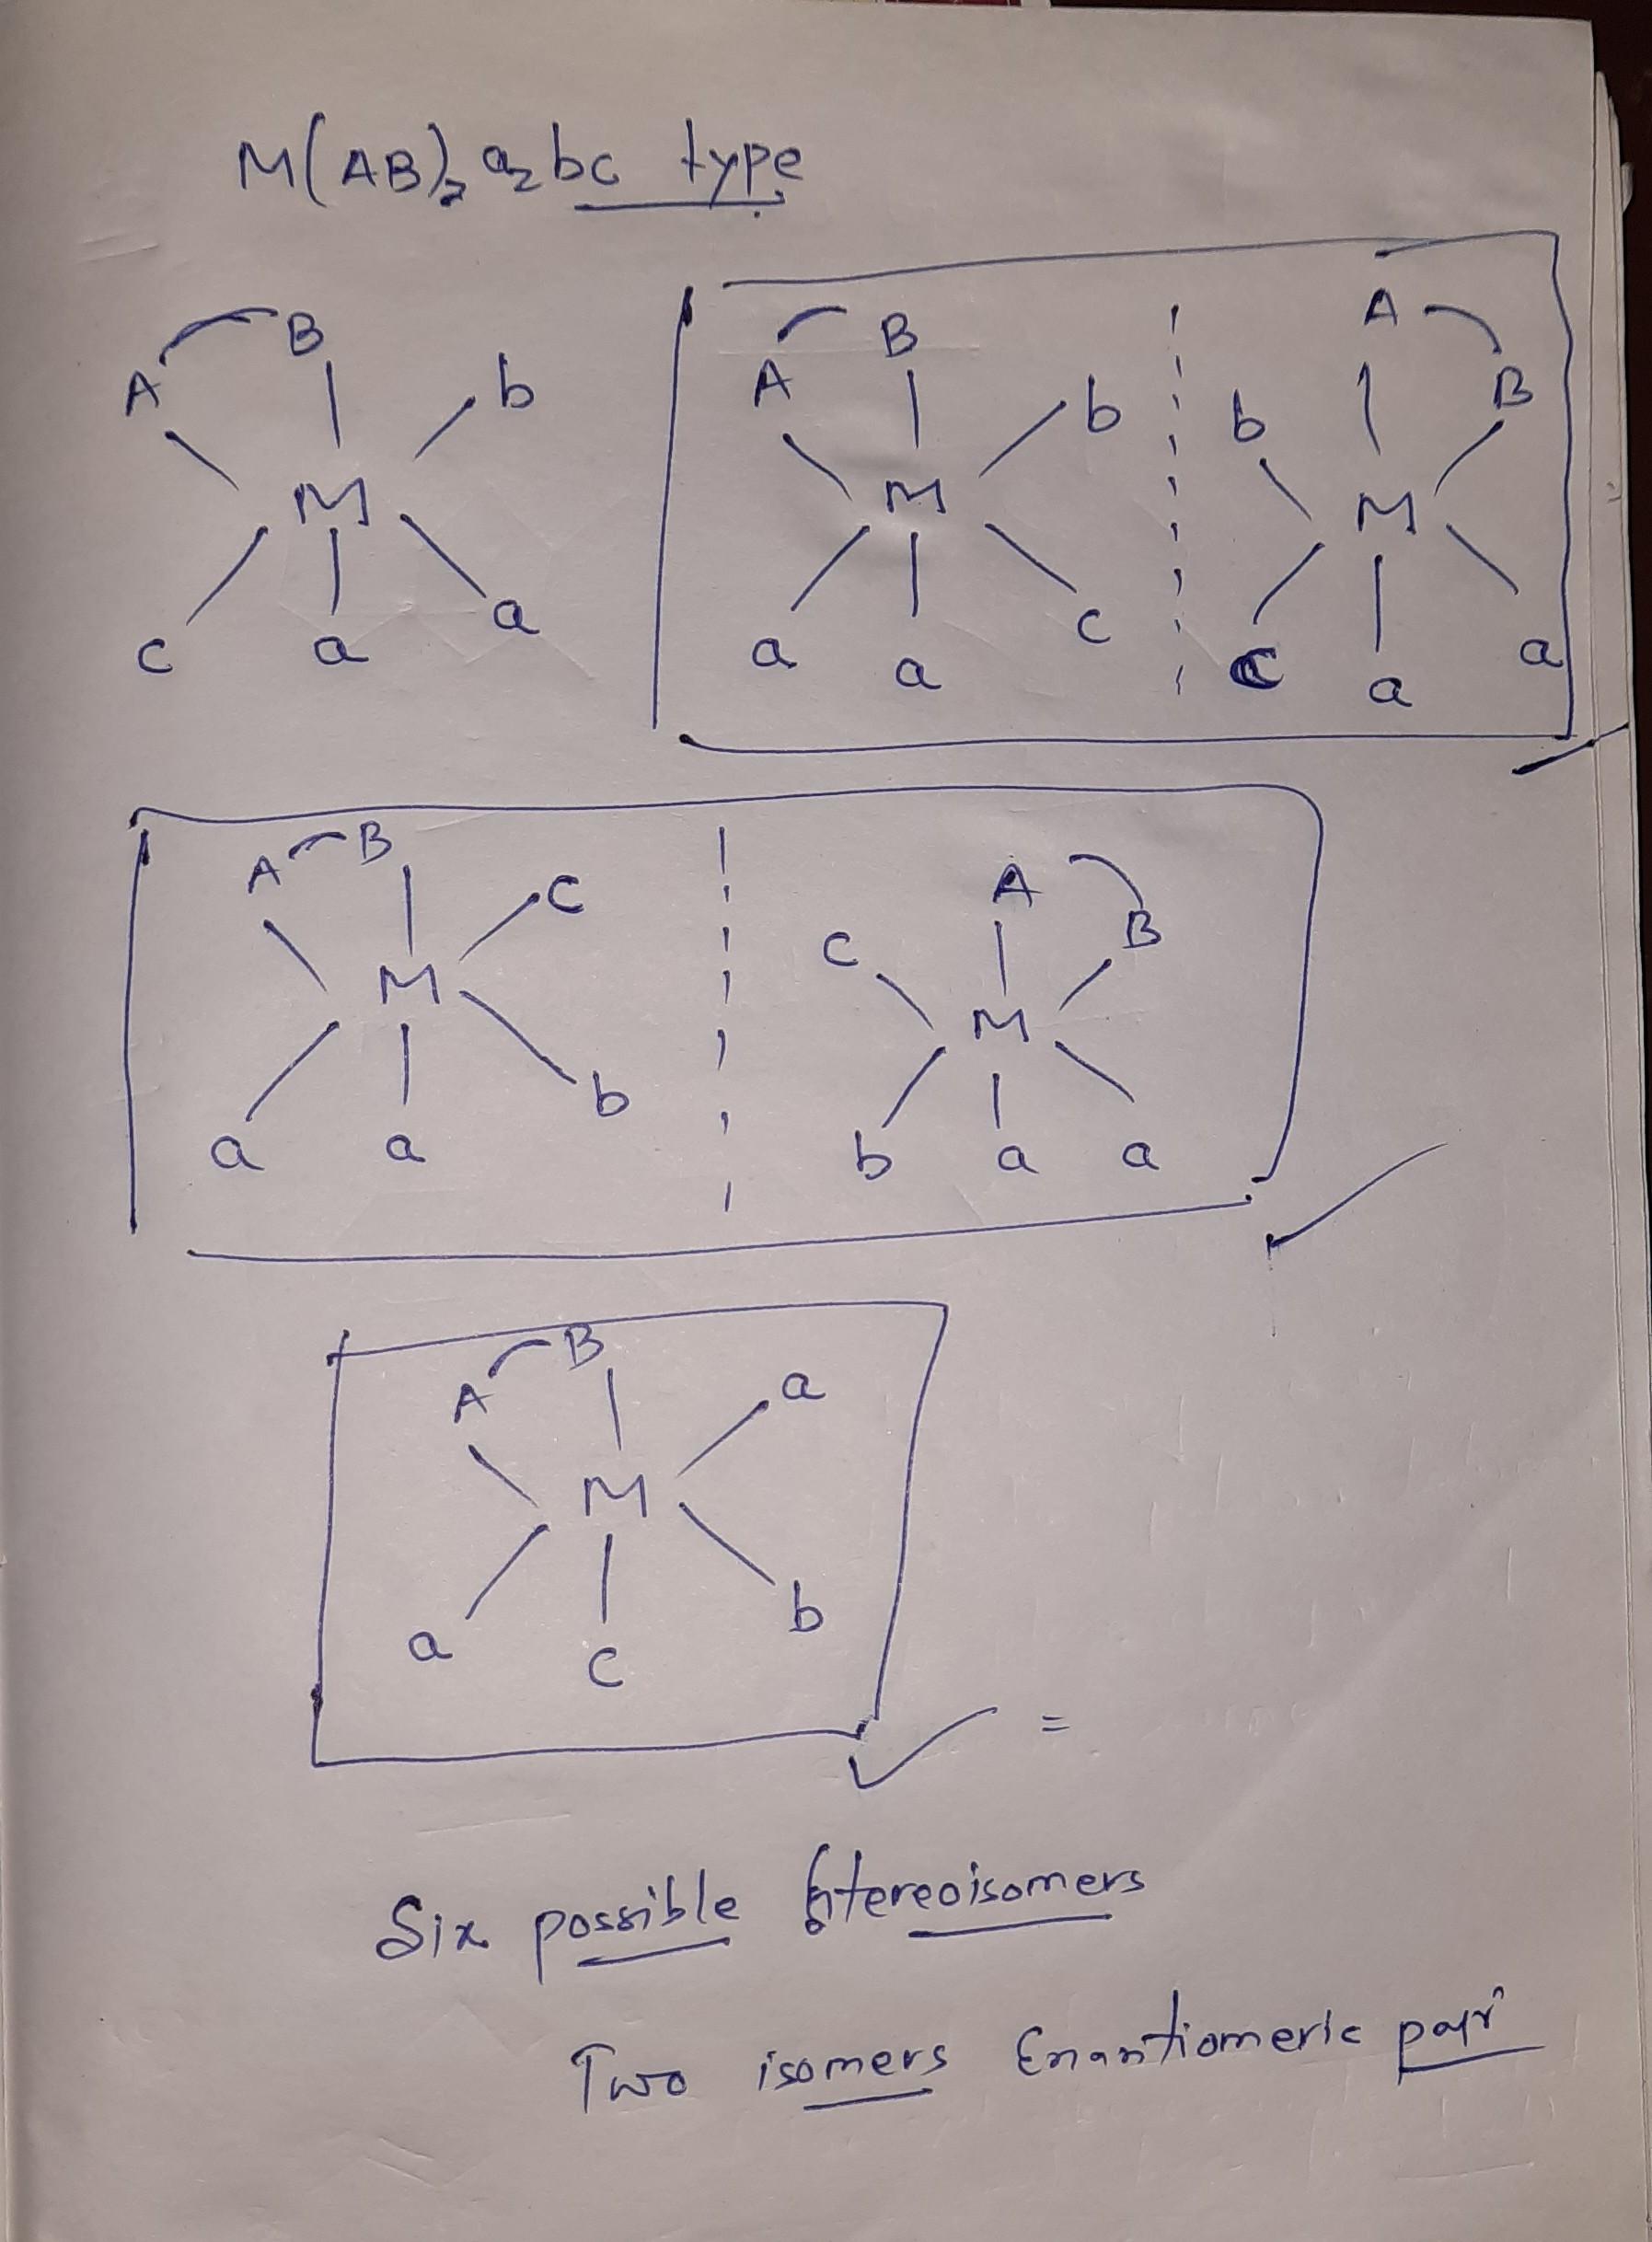 M(AB)₂ a₂bc type
A B b
M
c a a
A B b
M
a a c
A B b
M
C a a
A B C
M
a a b
A B C
M
b a a
A B a
M
a C b
=
Six possible Stereoisomers
Two isomers Enantiomeric pair